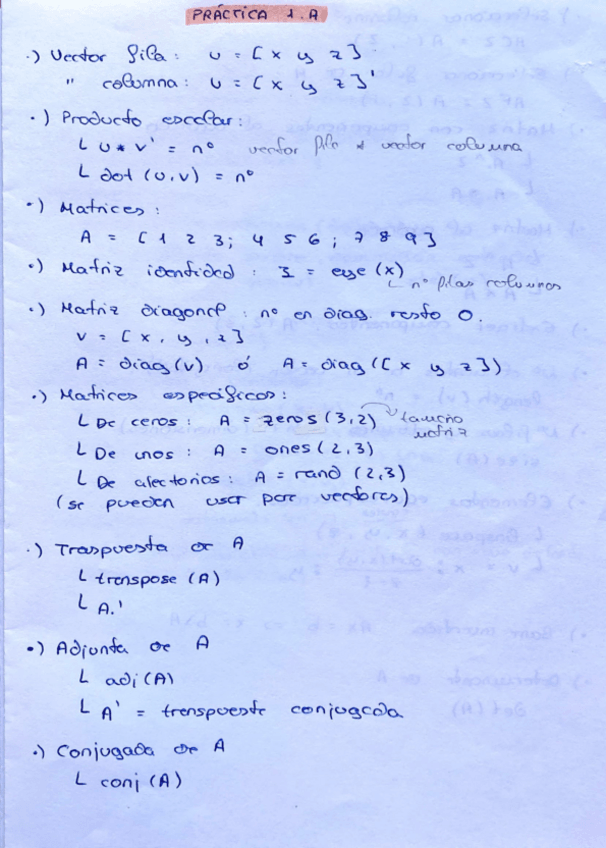 PRÁCTICA 1.A
·) Vector fila: u = [x y z]
" columna: u = [x y z]'
·) Producto escalar:
L u * v' = nº vector fila * vector columna
L dot (u,v) = nº
·) Matrices:
A = [1 2 3; 4 5 6; 7 8 9]
·) Matriz identidad: I = eye (x)
L nº filas columnas
·) Matriz diagonal: nº en diag. resto 0.
v = [x, y, z]
A = diag (v) ó A = diag ([x y z])
·) Matrices específicas:
L De ceros: A = zeros (3,2) → tamaño
matriz
L De unos: A = ones (2,3)
L De aleatorios: A = rand (2,3)
(se pueden usar para vectores)
·) Traspuesta de A
L transpose (A)
L A.'
·) Adjunta de A
L adj (A)
L A' = transpuesta conjugada
·) Conjugada de A
L conj (A)